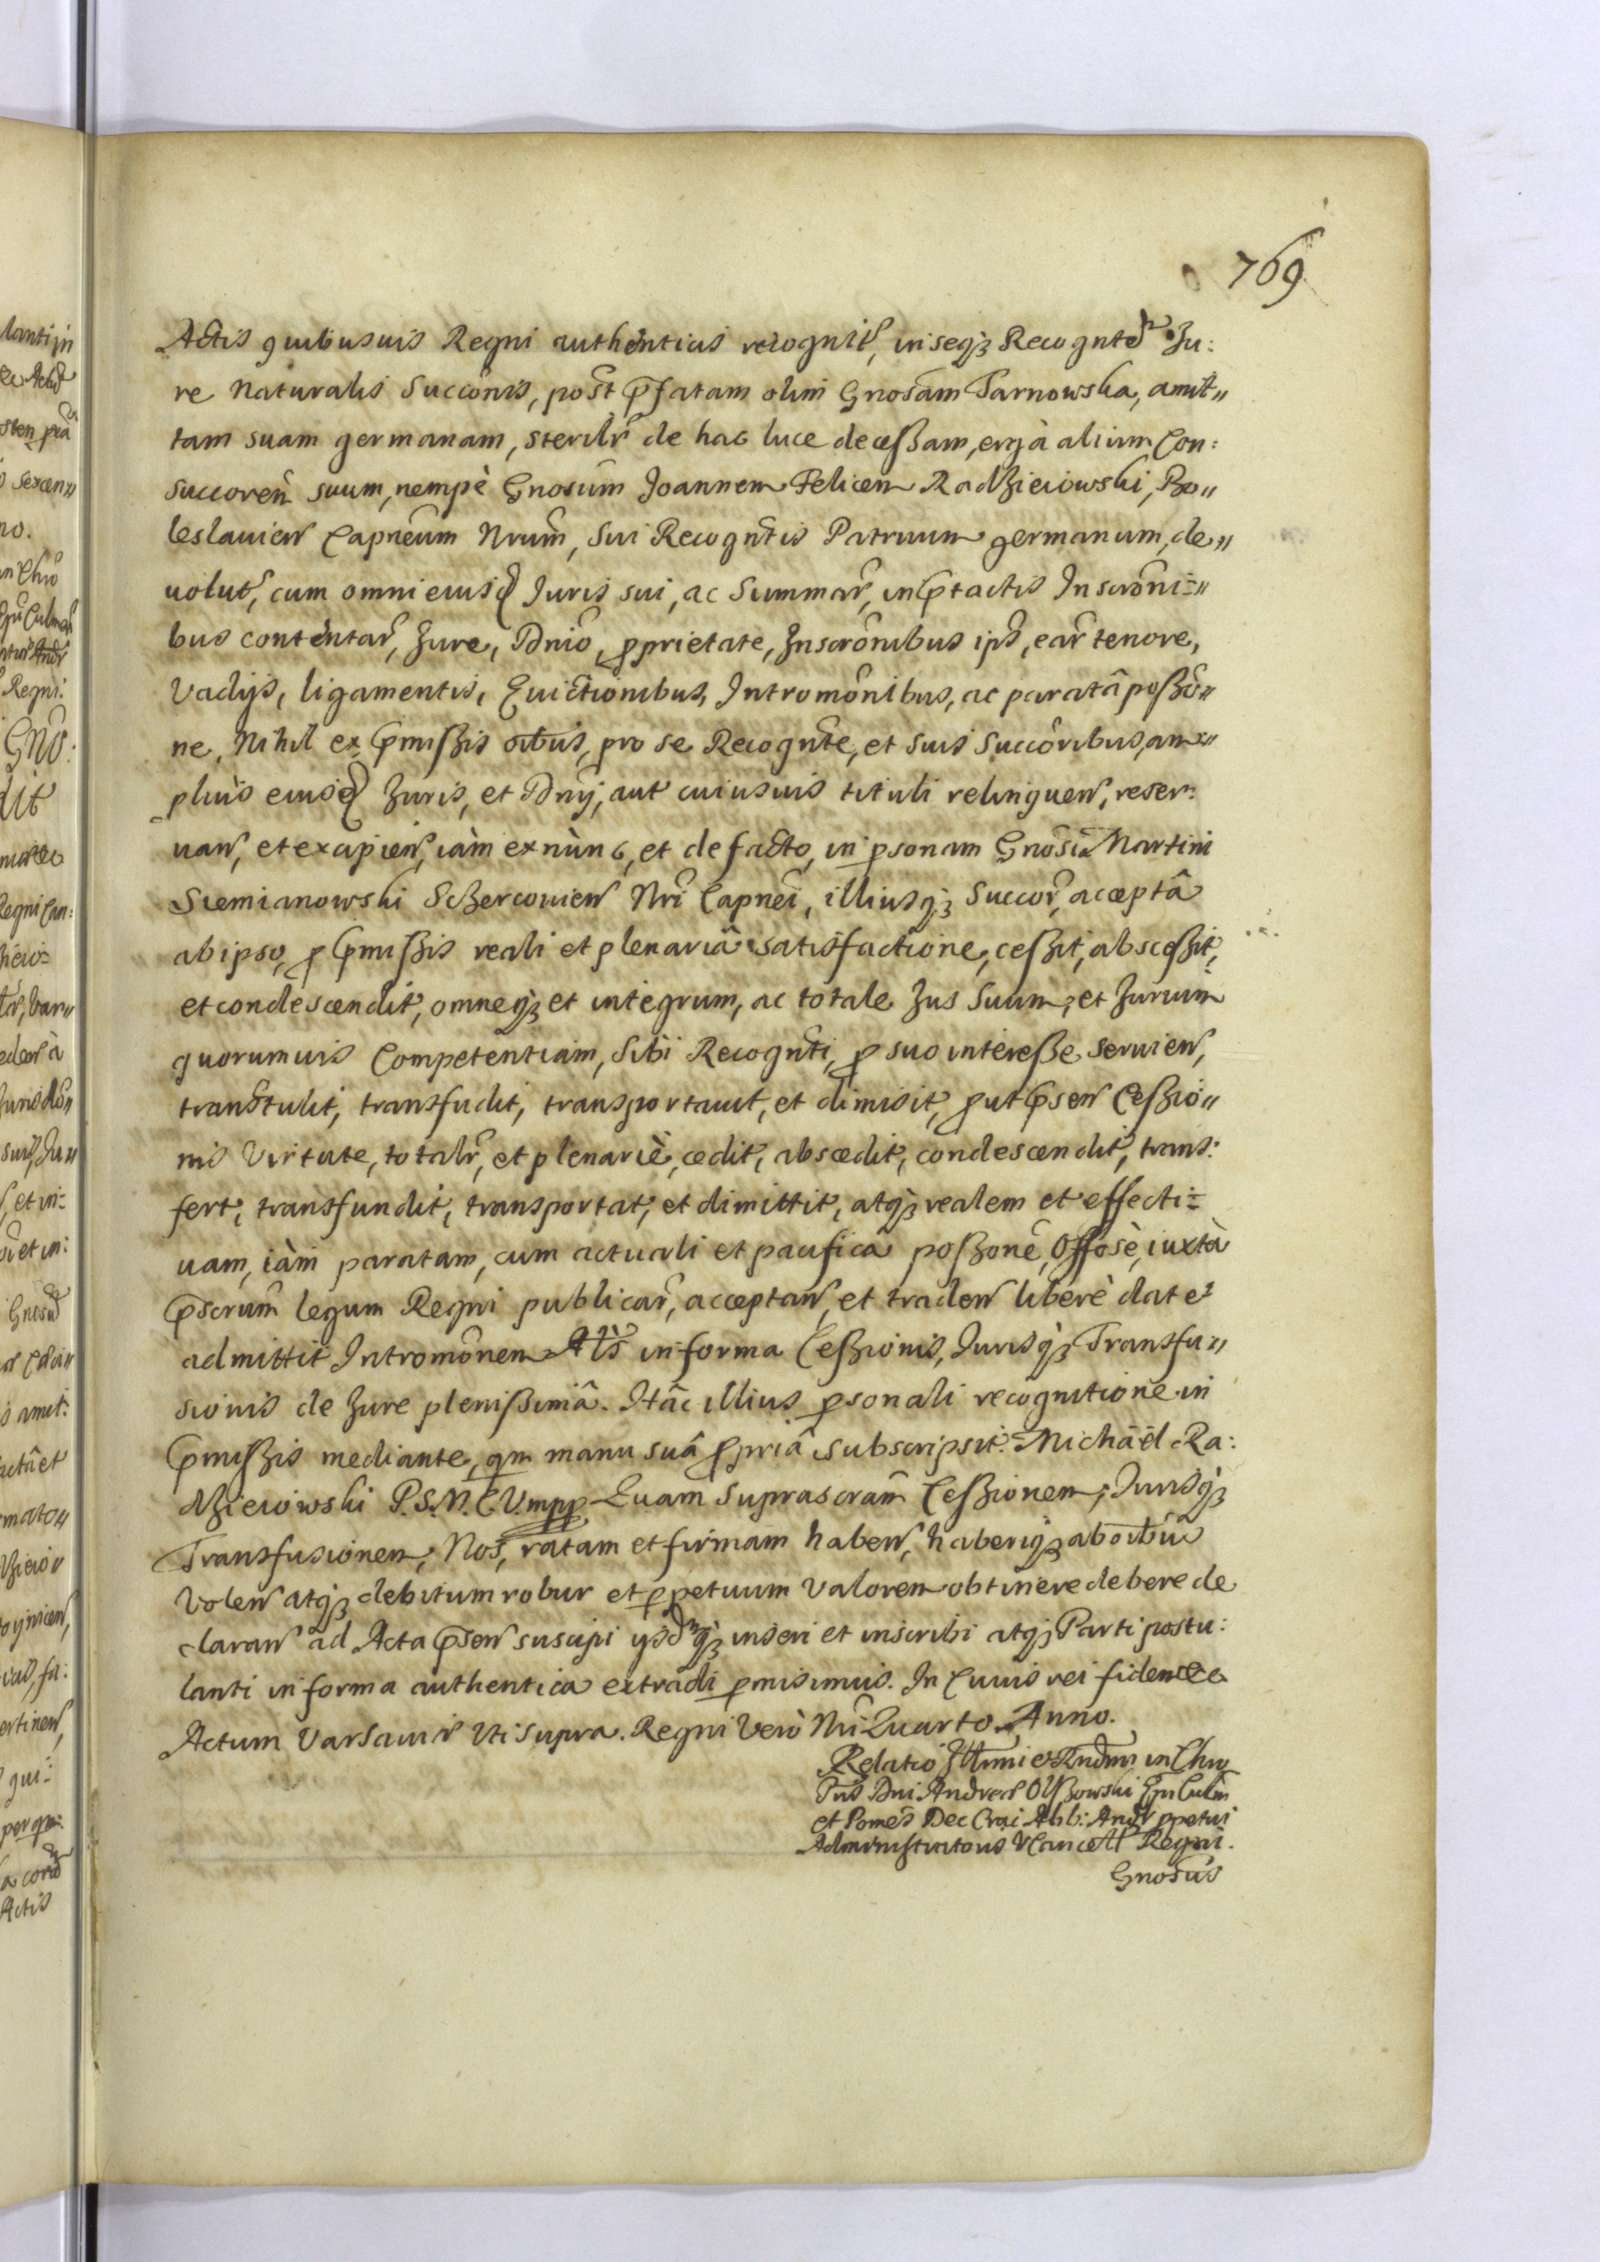 769
Actis quibusuis Regni authenticis recognit, in seqꝫ Recogntẽ Ju:
re Naturalis Succonis, post p̃fatam olim Gnosam Tarnowska, amit„
tam suam germanam, sterilr de hac luce decessam, ergà alium Con:
succorem suum, nempè Gnosum Joannem Felicem Radzieiowski, Bo„
leslauien Capneum Nrum, sui Recogntis Patruum germanum, de„
uolut, cum omni eiusd Juris sui, ac Summar, in p̃tactis Inscroni„
bus contentar, Jure, Dnio, pprietate, Inscronibus ips, ear tenore,
Vadijs, ligamentis, Euictionibus, Intromonibus, ac paratâ posso„
ne, Nihil ex p̃missis oibus, pro se Recognte, et suis succoribus, am„
pliùs eiusd Juris, et Dnij, aut cuiusuis tituli relinquen, reser:
uan, et excipien, iàm ex nùnc, et de facto, in psonam Gnosi Martini
Siemianowski Sczercouien Nri Capnei, illiusqꝫ Succor, acceptâ
ab ipso, p p̃missis reali et plenariâ satisfactione, cessit, abscessit,
et condescendit, omneqꝫ et integrum, ac totale Jus Suum, et Jurium
quorumuis Competentiam, Sibi Recognti, p suo interesse seruien,
transtulit, transfudit, transportauit, et dimisit, put p̃sen Cessio„
nis Virtute, totalr, et plenariè, cedit, abscedit, condescendit, trans:
fert, transfundit, transportat, et dimittit, atqꝫ realem et effecti„
uam, iàm paratam, cum actuali et pacificâ possone, Offosè, iuxtà
p̃scrum legum Regni publicar, acceptan, et traden liberè dat et
admittit Intromonem Als in forma Cessionis, Jurisqꝫ Transfu„
sionis de Jure plenissimâ. Itâc illius psonali recognitione in
p̃missis mediante, qm manu suâ ppriâ subscripsit. Michäel Ra:
dzieiowski P.S.N.C.V.mpp Quam suprascram Cessionem, Jurisqꝫ
Transfusionem, Nos, ratam et firmam haben, haberiqꝫ ab oibus
Volen atqꝫ debitum robur et ppetuum Valorem obtinere debere de
claran ad Acta p̃sen suscipi ysdqꝫ inseri et inscribi atqꝫ Parti postu:
lanti in forma authentica extradi pmisimus. In Cuius rei fidem &c
Actum Varsauiæ Uti supra. Regni Verò Nri Quarto Anno.
Relatio Illmi et Rndmi in Chro
Pris Dni Andreæ Olszowski Epi Culm
et Pomes Dec Crac Abb: Andr ppetui
Administratoris VCancell Regni.
Gnosus